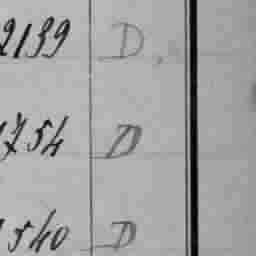 2139 D
1754 D
1540 D